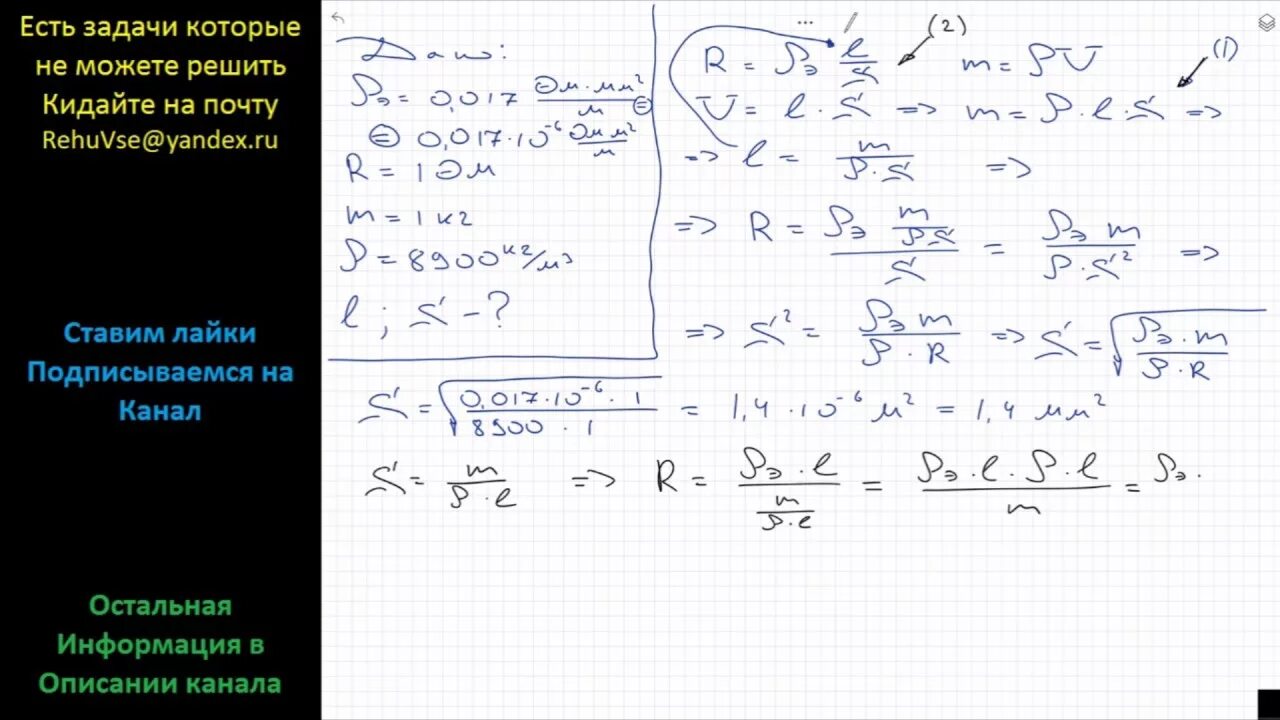 Есть задачи которые
не можете решить
Кидайте на почту
RehuVse@yandex.ru
Ставим лайки
Подписываемся на
Канал
Остальная
Информация в
Описании канала
Дано:
ρэ = 0,017 Ом·мм²/м =
= 0,017·10⁻⁶ Ом м²/м
R = 1 Ом
m = 1 кг
ρ = 8900 кг/м³
l ; S - ?
R = ρэ l/S (2) m = ρV (1)
V = l · S => m = ρ · l · S =>
=> l = m/(ρ·S) =>
=> R = (ρэ m/(ρS))/S = ρэ m/(ρ·S²) =>
=> S² = ρэ m/(ρ · R) => S = √(ρэ · m/(ρ · R))
S = √(0,017·10⁻⁶ · 1/(8900 · 1)) = 1,4 · 10⁻⁶ м² = 1,4 мм²
S = m/(ρ · l) => R = ρэ · l/(m/(ρ·l)) = ρэ · l · ρ · l/m = ρэ ·